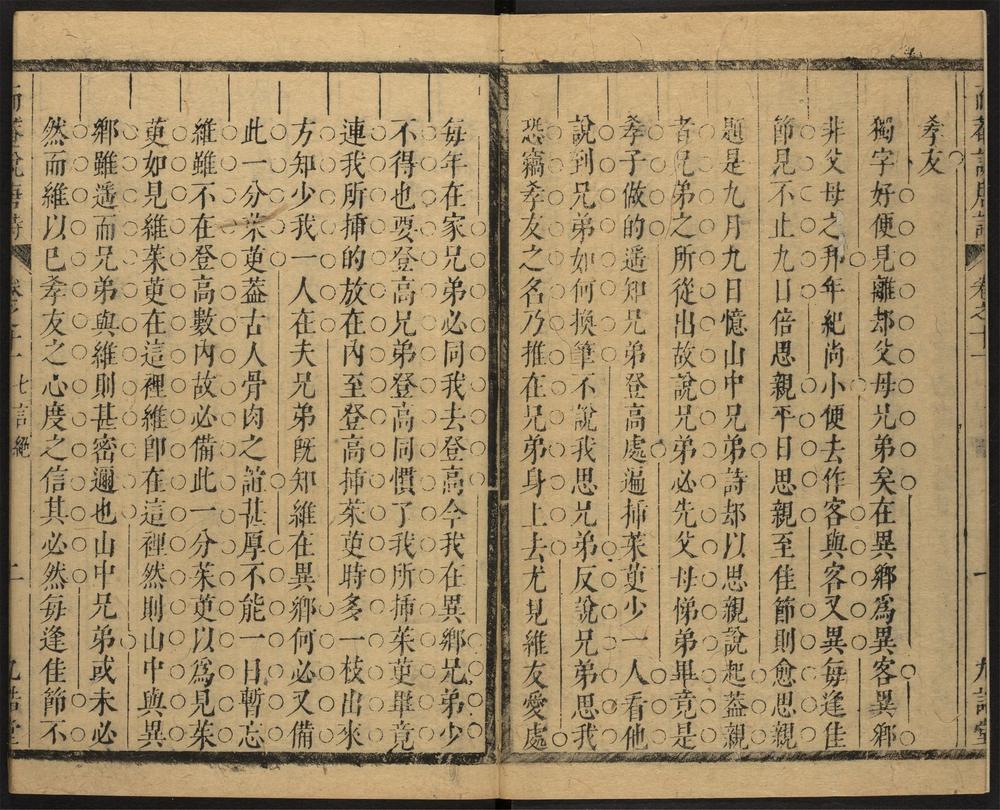 孝友
獨字好便見離却父母兄弟矣在異鄉爲異客異鄉
非父母之邦年紀尚小便去作客與客又異每逢佳
節見不止九日倍思親平日思親至佳節則愈思親
題是九月九日憶山中兄弟詩却以思親說起葢親
者兄弟之所從出故說兄弟必先父母悌弟畢竟是
孝子做的遥知兄弟登高處遍揷茱萸少一人看他
說到兄弟如何換筆不說我思兄弟反說兄弟思我
恐竊孝友之名乃推在兄弟身上去尤見維友愛處
每年在家兄弟必同我去登高今我在異鄉兄弟少
不得也要登高兄弟登高同慣了我所揷茱萸畢竟
連我所揷的放在內至登高揷茱萸時多一枝出來
方知少我一人在夫兄弟旣知維在異鄉何必又備
此一分茱萸葢古人骨肉之誼甚厚不能一日暫忘
維雖不在登高數內故必備此一分茱萸以爲見茱
萸如見維茱萸在這裡維卽在這裡然則山中與異
鄉雖遥而兄弟與維則甚密邇也山中兄弟或未必
然而維以已孝友之心度之信其必然每逢佳節不
而菴說唐詩 卷之十一 七言絶 二 九誥堂